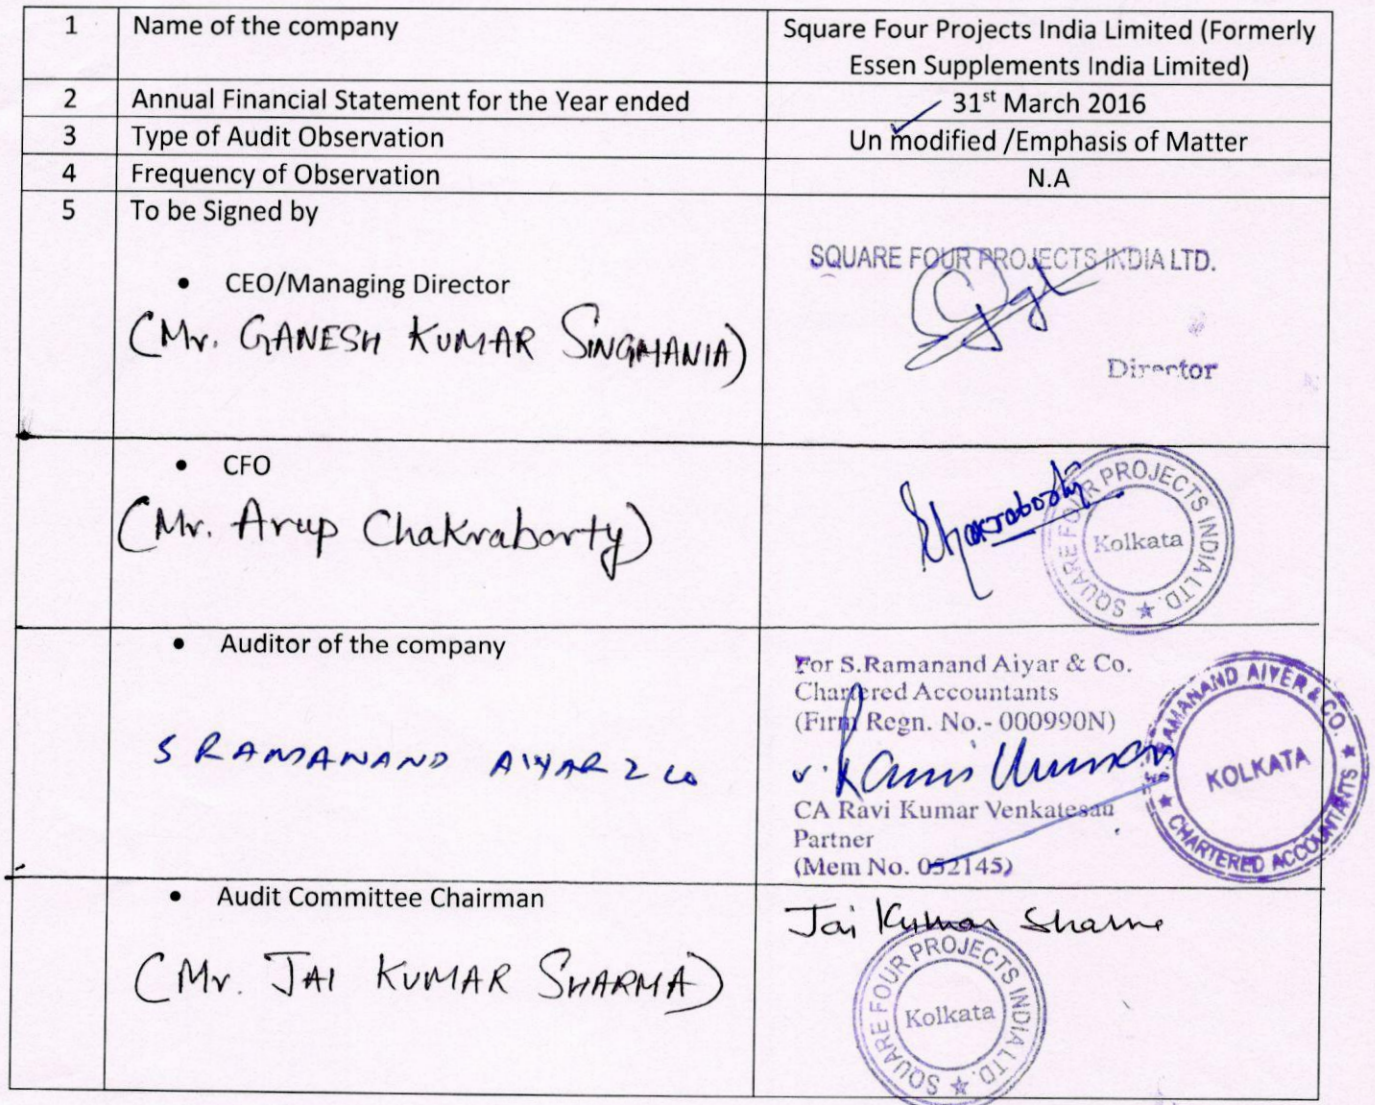 1 Name of the company Square Four Projects India Limited (Formerly
Essen Supplements India Limited)
2 Annual Financial Statement for the Year ended 31st March 2016
3 Type of Audit Observation Un modified /Emphasis of Matter
4 Frequency of Observation N.A
5 To be Signed by
SQUARE FOUR PROJECTS INDIA LTD.
• CEO/Managing Director
(Mr. GANESH KUMAR SINGHANIA)
Director
• CFO
(Mr. Arup Chakraborty)
Chakraborty
SQUARE FOUR PROJECTS INDIA LTD. ★
Kolkata
• Auditor of the company
S RAMANAND AIYAR & CO
For S.Ramanand Aiyar & Co.
Chartered Accountants
(Firm Regn. No.- 000990N)
v. Ravi Kumar
CA Ravi Kumar Venkatesan
Partner
(Mem No. 052145)
RAMANAND AIYER & CO.
★ CHARTERED ACCOUNTANTS ★
KOLKATA
• Audit Committee Chairman
(Mr. JAI KUMAR SHARMA)
Jai Kumar Sharma
SQUARE FOUR PROJECTS INDIA LTD. ★
Kolkata